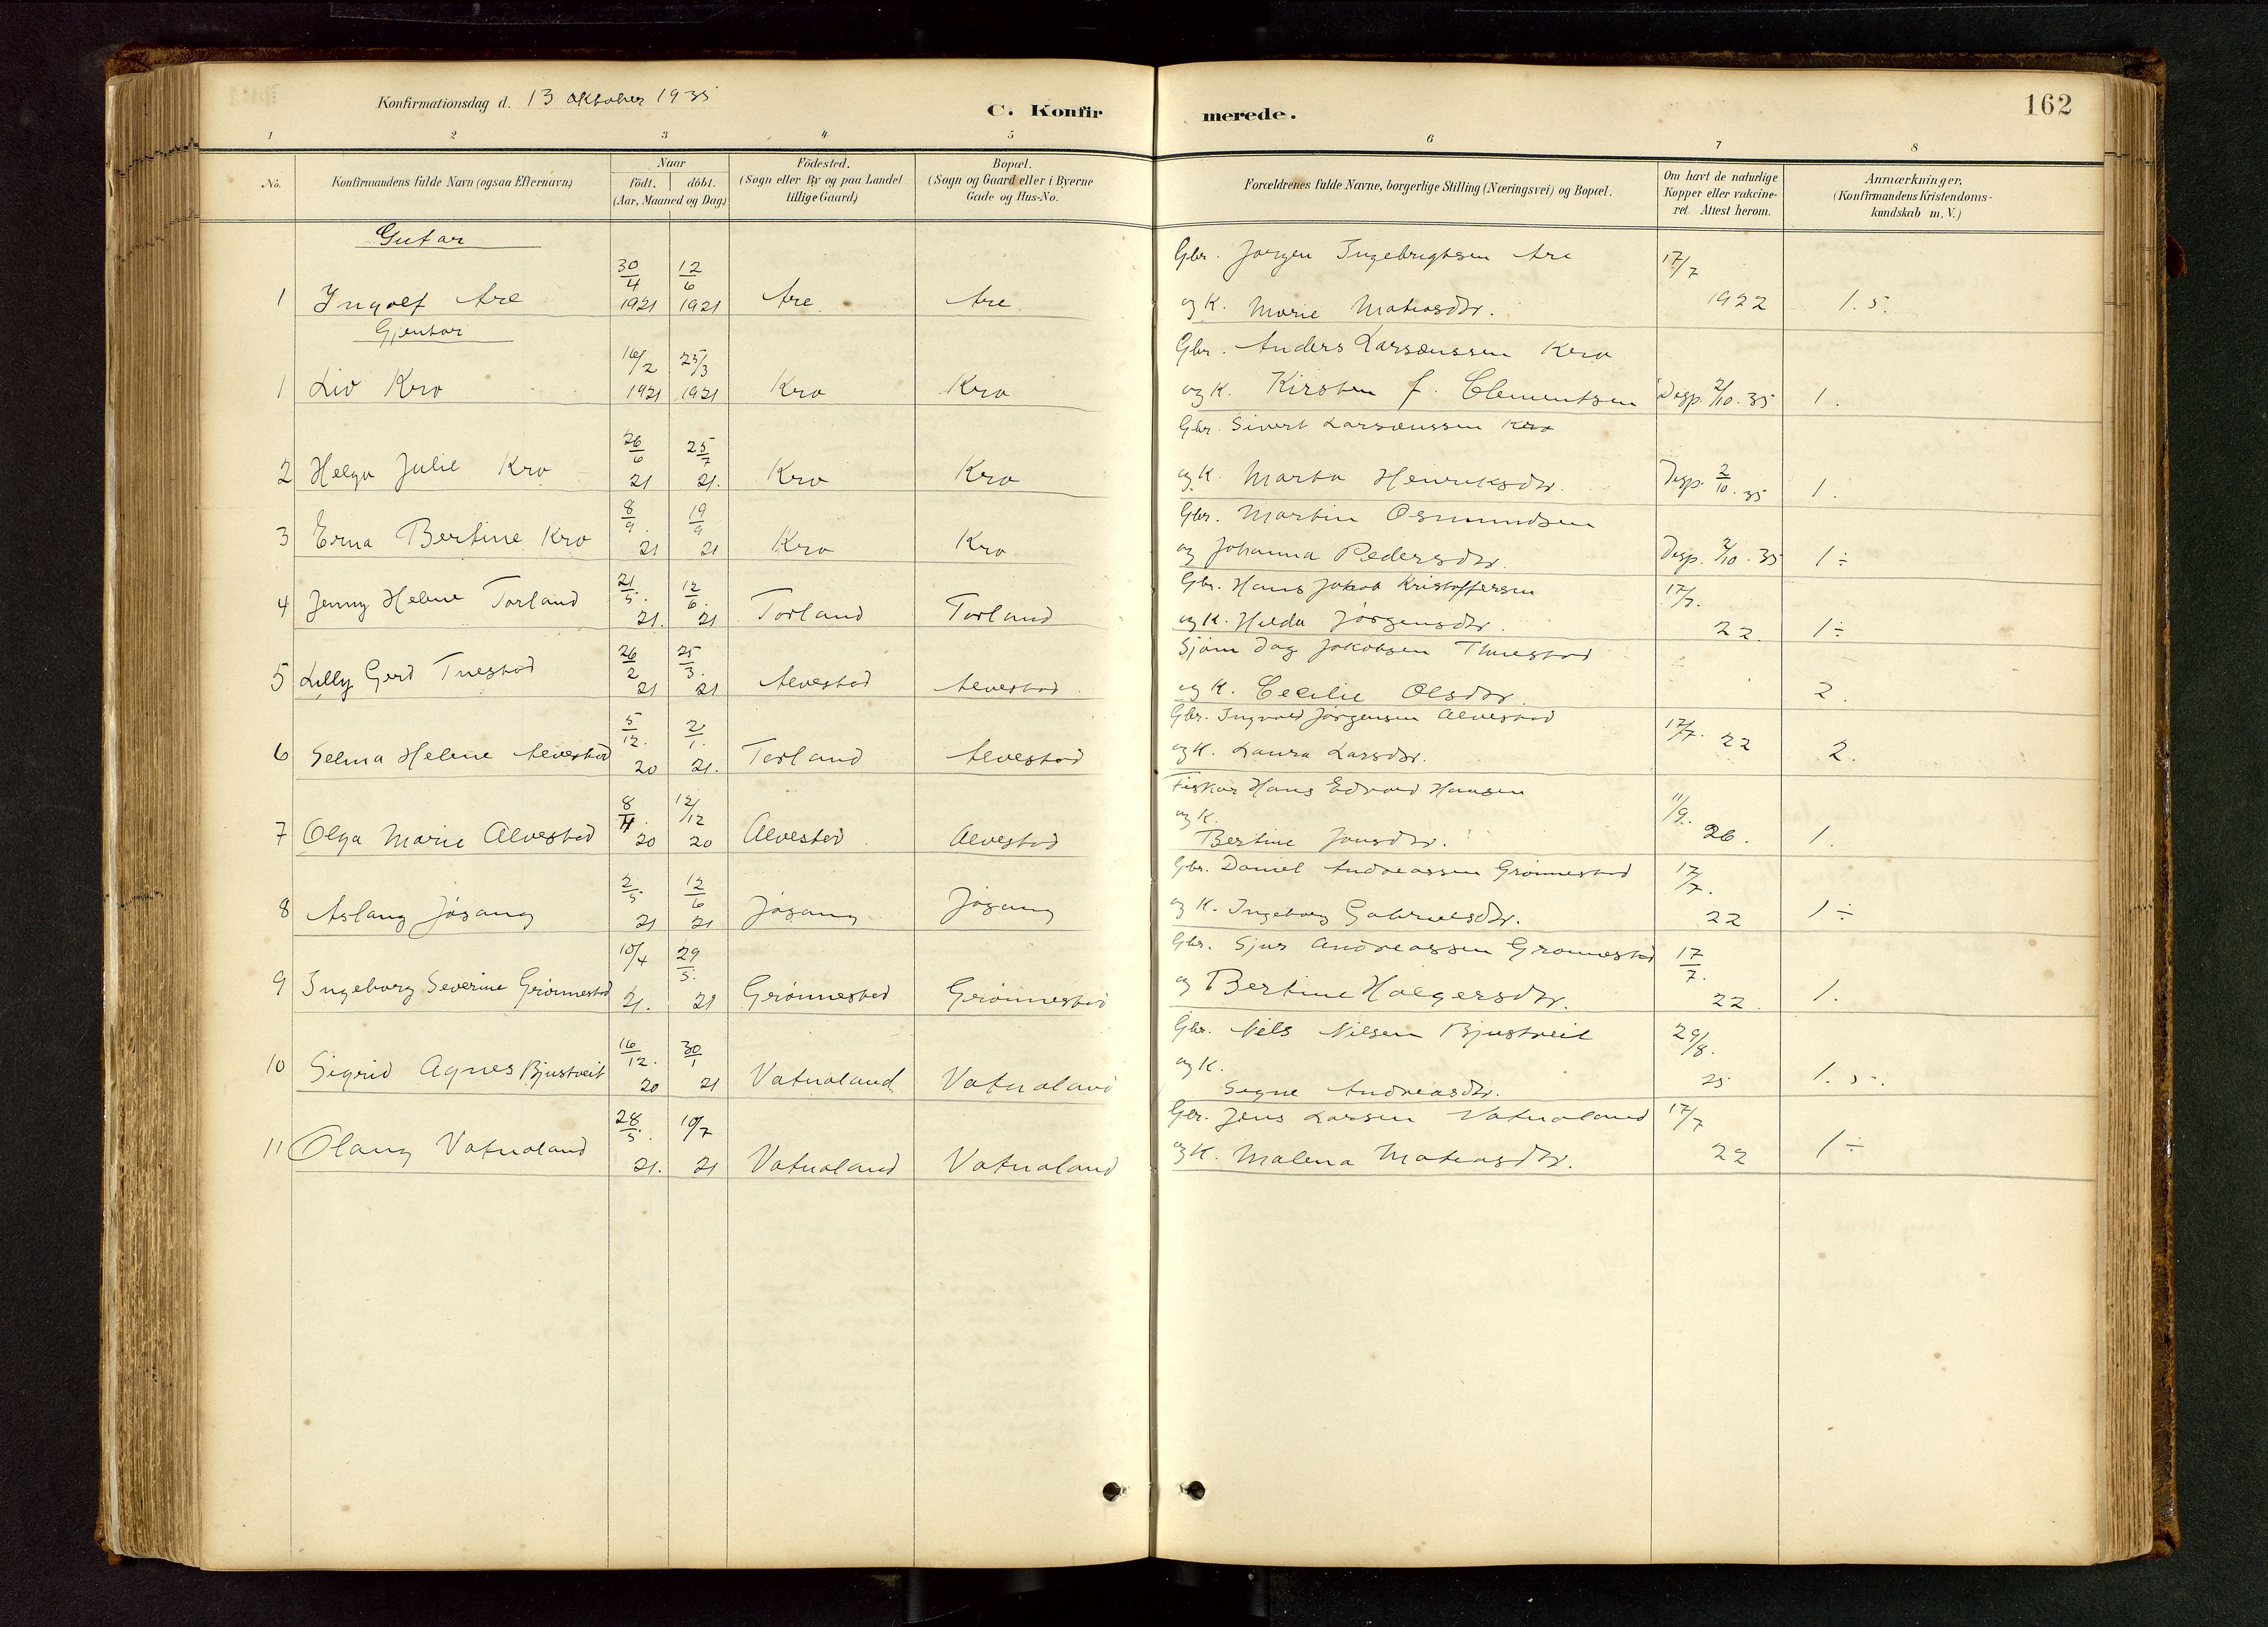 Konfirmationsdag d. 13 Oktober 1935
C. Konfirmerede.
162
1 2 3 4 5 6 7 8
No.
Konfirmandens fulde Navn (ogsaa Efternavn)
Naar
födt. döbt.
(Aar, Maaned og Dag)
Födested.
(Sogn eller By og paa Landet
tillige Gaard)
Bopæl.
(Sogn og Gaard eller i Byerne
Gade og Hus-No.
Forældrenes fulde Navne, borgerlige Stilling (Næringsvei) og Bopæl.
Om havt de naturlige
Kopper eller vakcine-
ret. Attest herom.
Anmærkninger,
(Konfirmandens Kristendoms-
kundskab m. V.)
Gutar
Gbr. Jørgen Ingebrigtsen Are 17/7
30/4 12/6
1 Ingolf Are 1921 1921 Are Are og K. Marie Mateasdtr. 1922 1.5.
Gjentor
Gbr. Anders Larsenssen Kro
16/2 25/3
1 Liv Kro 1921 1921 Kro Kro og K. Kirsten f. Clementsen Disp. 2/10. 35 1.
Gbr. Sivert Larsenssen Kro
26/6 25/7
2 Helga Julie Kro 21 21. Kro Kro og K. Marta Henriksdtr. Disp. 2/10. 35 1.
Gbr. Martin Osmundsen
8/9. 19/9
3 Erna Bertine Kro 21 21 Kro Kro og Johanna Pedersdtr. Disp. 2/10. 35 1÷
Gbr. Hans Jakob Kristoffersen 17/7.
21/5. 12/6.
4 Jenny Helene Torland 21. 21 Torland Torland og K. Hilda Jørgensdtr. 22. 1÷
Sjöm Dag Jakobsen Thuestad
26/2 25/3.
5 Lilly Gerd Tuestad 21 21 Alvestad Alvestad og K. Cecilie Olsdtr. 2.
Gbr. Ingvald Jørgensen Alvestad 17/7. 22
5/12. 2/1.
6 Selma Helene Alvestad 20 21. Torland Alvestad og K. Laura Larsdtr. 2.
Fiskar Hans Edvard Hansen 11/9.
8/11. 12/12 og K.
7 Olga Marie Alvestad 20 20 Alvestad Alvestad Bertine Jonsdtr. 26. 1.
Gbr. Daniel Andreassen Grønnestad 17/7.
2/5. 12/6
8 Aslaug Jøsang 21 21 Jøsang Jøsang og K. Ingeborg Gabrielsdtr. 22 1÷
Gbr. Sjur Andreassen Grønnestad 17/7.
10/4 29/5.
9 Ingeborg Severine Grönnestad 21. 21 Grönnestad Grönnestad og Bertine Holgersdtr. 22 1.
Gbr. Nils Nilsen Bjustveit 29/8.
16/12. 30/1 og K.
10 Sigrid Agnes Bjustveit 20 21 Vatnaland Vatnaland Signe Andreasdtr. 25 1.5.
Gbr. Jens Larsen Vatnaland 17/7
28/5. 10/7
11 Olaug Vatnaland 21. 21 Vatnaland Vatnaland og K. Malena Mateasdtr. 22 1÷